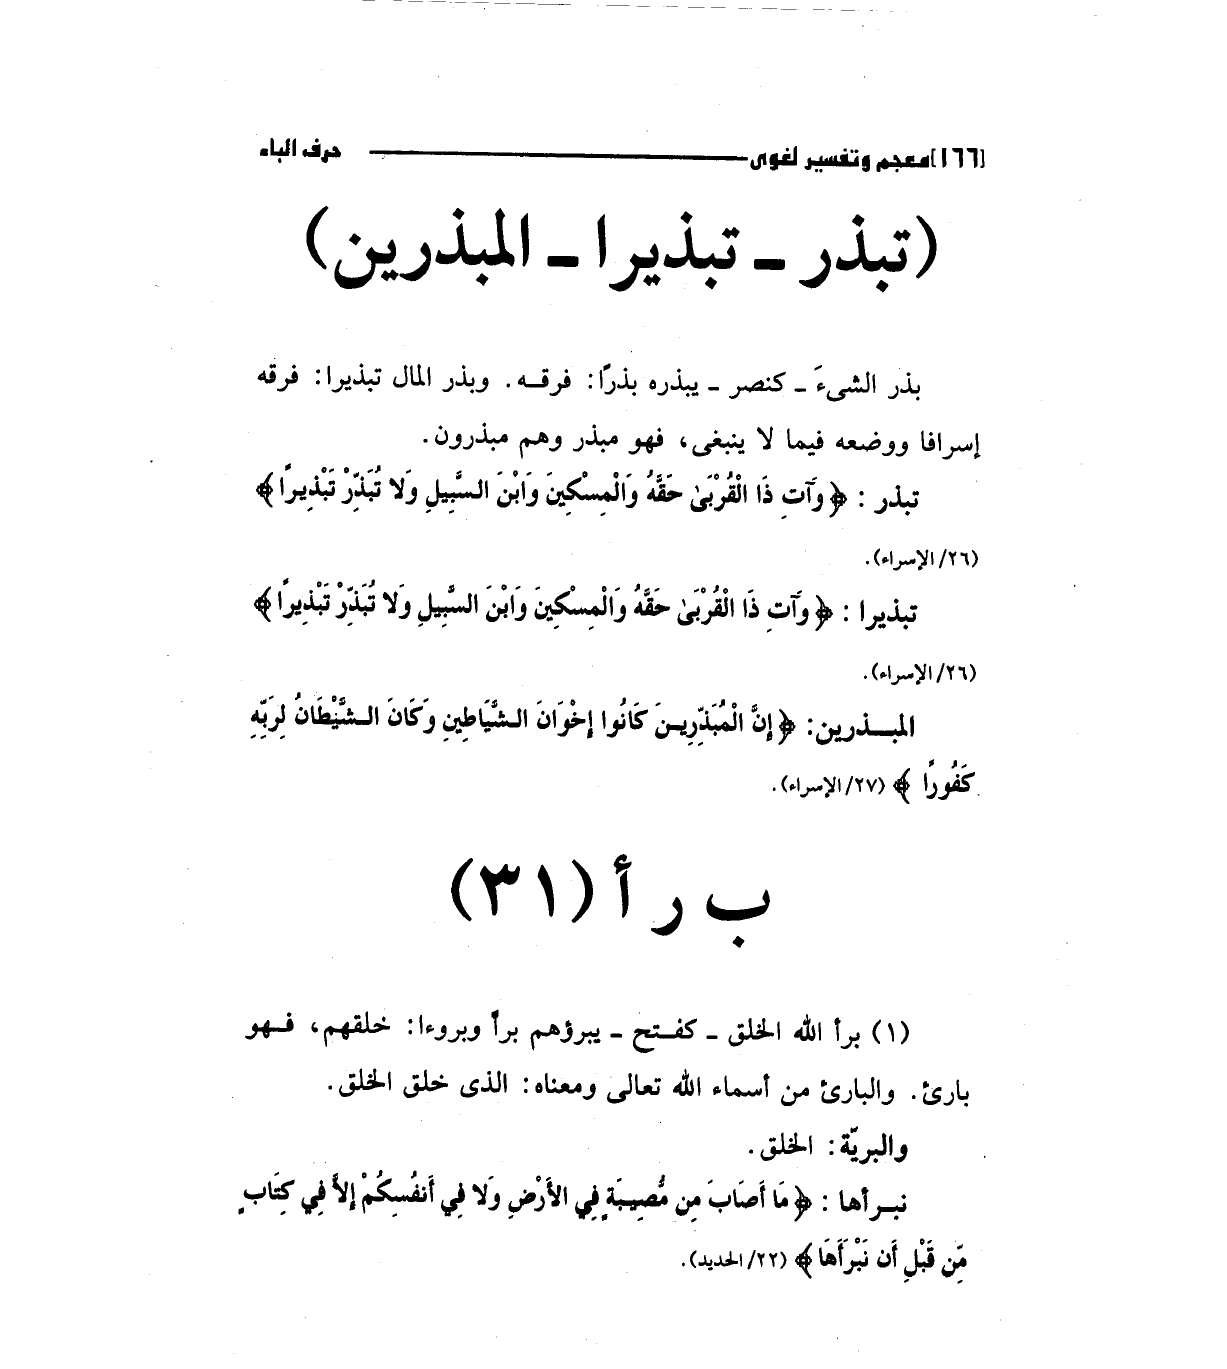 [١٦٦] معجم وتفسير لغوى — حرف الباء
(تبذر ـ تبذيرا ـ المبذرين)
بذر الشىءَ ـ كنصر ـ يبذره بذرًا: فرقه. وبذر المال تبذيرا: فرقه
إسرافا ووضعه فيما لا ينبغى، فهو مبذر وهم مبذرون.
تبذر : ﴿وَآتِ ذَا الْقُرْبَىٰ حَقَّهُ وَالْمِسْكِينَ وَابْنَ السَّبِيلِ وَلا تُبَذِّرْ تَبْذِيرًا﴾
(٢٦/ الإسراء).
تبذيرا : ﴿وَآتِ ذَا الْقُرْبَىٰ حَقَّهُ وَالْمِسْكِينَ وَابْنَ السَّبِيلِ وَلا تُبَذِّرْ تَبْذِيرًا﴾
(٢٦/ الإسراء).
المبذرين: ﴿إِنَّ الْمُبَذِّرِينَ كَانُوا إِخْوَانَ الشَّيَاطِينِ وَكَانَ الشَّيْطَانُ لِرَبِّهِ
كَفُورًا ﴾ (٢٧/ الإسراء).
ب ر أ (٣١)
(١) برأ الله الخلق ـ كفتح ـ يبرؤهم برأً وبروءا: خلقهم، فهو
بارئ. والبارئ من أسماء الله تعالى ومعناه: الذى خلق الخلق.
والبريّة: الخلق.
نبرأها : ﴿مَا أَصَابَ مِن مُّصِيبَةٍ فِي الأَرْضِ وَلا فِي أَنفُسِكُمْ إِلاَّ فِي كِتَابٍ
مِّن قَبْلِ أَن نَبْرَأَهَا﴾ (٢٢/ الحديد).